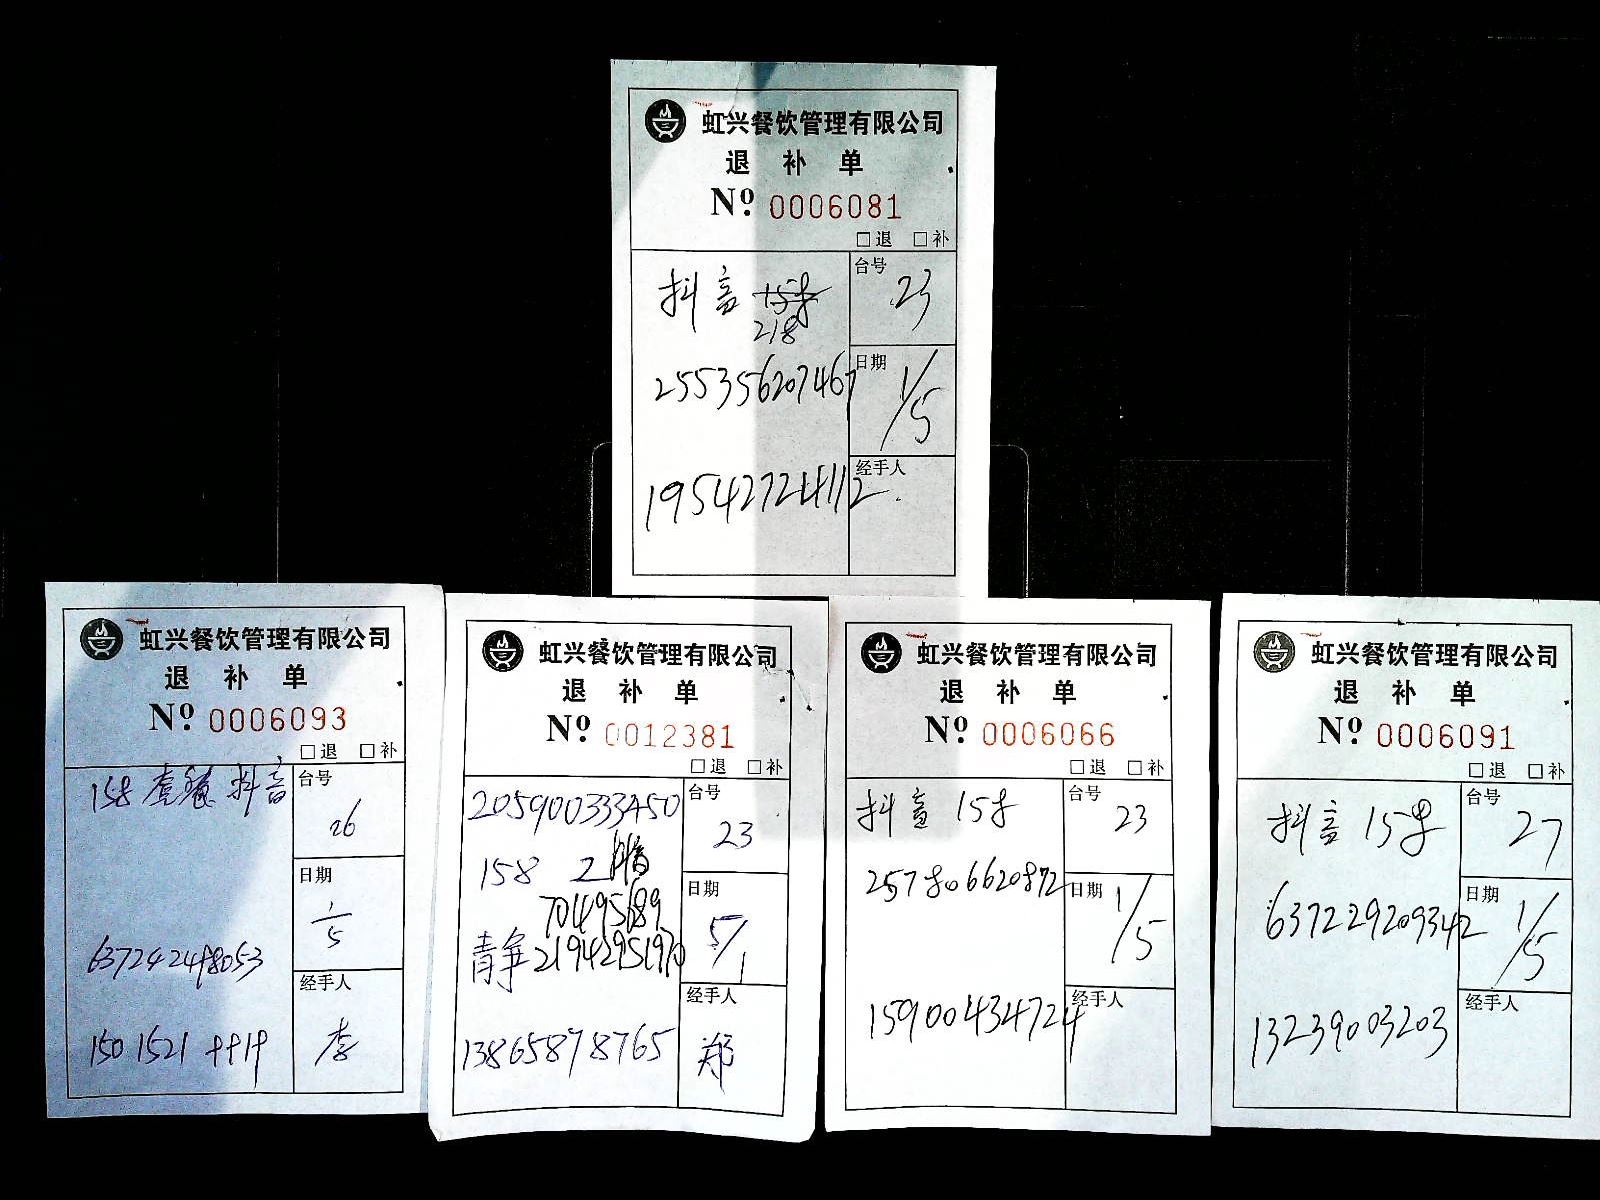 虹兴餐饮管理有限公司
退 补 单
Nº 0006081
□退 □补
抖音 158
218
台号
23
255356207467
日期
1/5
19542724112
经手人
虹兴餐饮管理有限公司
退 补 单
Nº 0006093
□退 □补
158 套餐 抖音
台号
26
日期
1/5
637242498053
经手人
150 1521 4419
李
虹兴餐饮管理有限公司
退 补 单
Nº 0012381
□退 □补
205900333450
台号
23
158 2
704495689
日期
5/1
21942951970
经手人
13865878765
郑
虹兴餐饮管理有限公司
退 补 单
Nº 0006066
□退 □补
抖音 158
台号
23
257806620872
日期
1/5
15900434724
经手人
虹兴餐饮管理有限公司
退 补 单
Nº 0006091
□退 □补
抖音 158
台号
27
637229209342
日期
1/5
13239003203
经手人